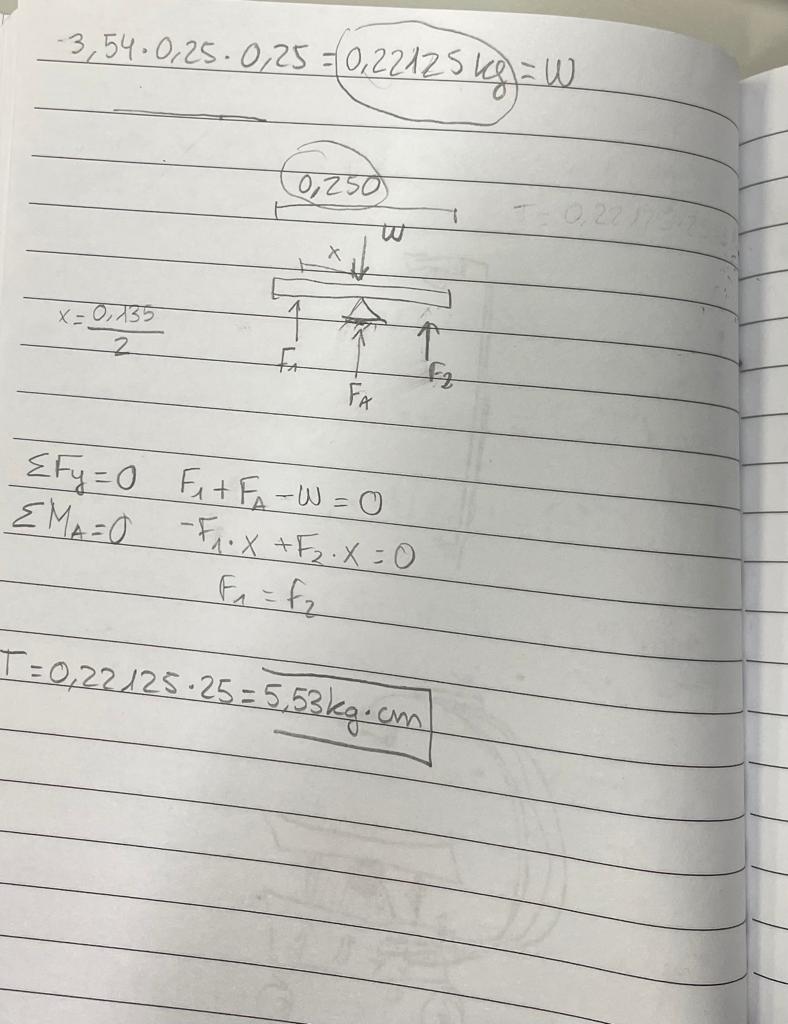 3,54·0,25·0,25 = 0,22125 kg = W
0,250
W
x
x = 0,135 / 2
F1
F2
FA
ΣFy = 0 F1 + FA - W = 0
ΣMA = 0 -F1·x + F2·x = 0
F1 = f2
T = 0,22125·25 = 5,53 kg·cm